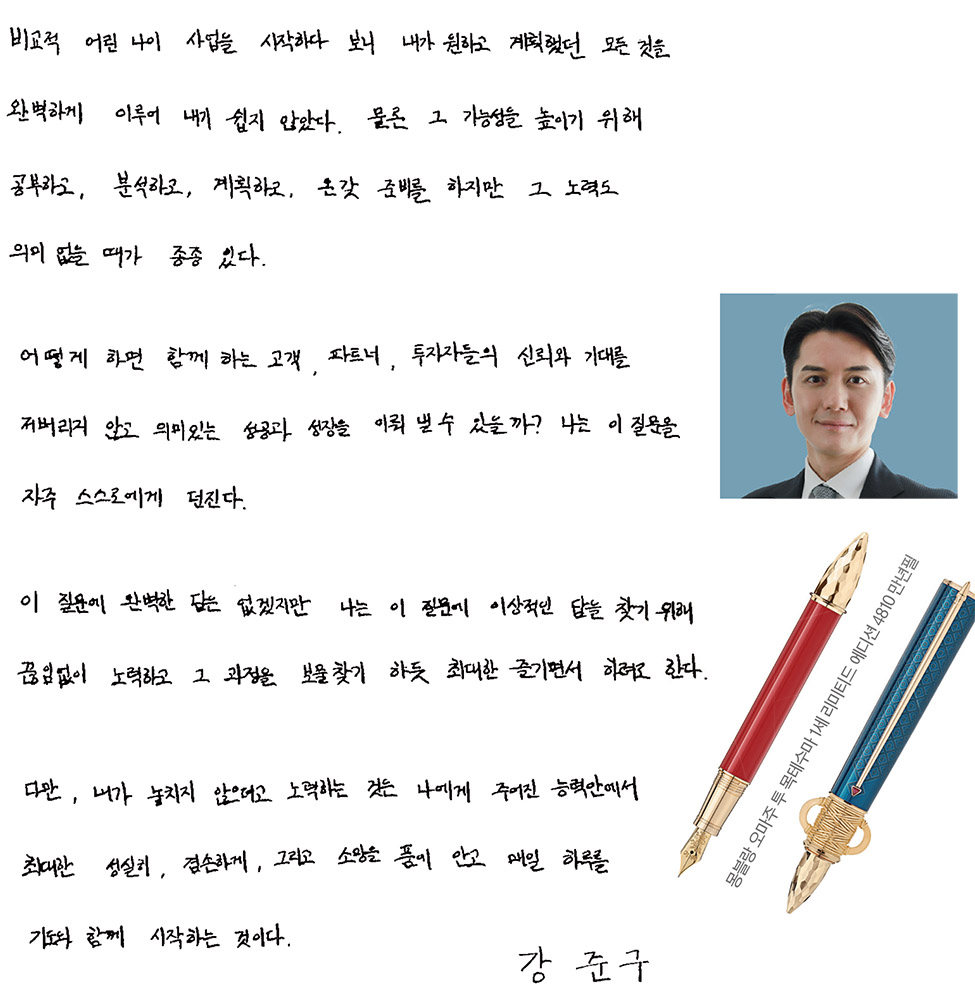 비교적 어린 나이 사업을 시작하다 보니 내가 원하고 계획했던 모든 것을
완벽하게 이루어 내기 쉽지 않았다. 물론 그 가능성을 높이기 위해
공부하고, 분석하고, 계획하고, 온갖 준비를 하지만 그 노력도
의미 없을 때가 종종 있다.
어떻게 하면 함께 하는 고객, 파트너, 투자자들의 신뢰와 기대를
저버리지 않고 의미있는 성공과 성장을 이뤄 낼 수 있을까? 나는 이 질문을
자주 스스로에게 던진다.
이 질문에 완벽한 답은 없겠지만 나는 이 질문에 이상적인 답을 찾기 위해
끊임없이 노력하고 그 과정을 보물찾기 하듯 최대한 즐기면서 하려고 한다.
다만, 내가 놓치지 않으려고 노력하는 것은 나에게 주어진 능력안에서
최대한 성실히, 겸손하게, 그리고 소망을 품에 안고 매일 하루를
기도와 함께 시작하는 것이다.
강 준구
몽블랑 오마주 투 목테수마 1세 리미티드 에디션 4810 만년필